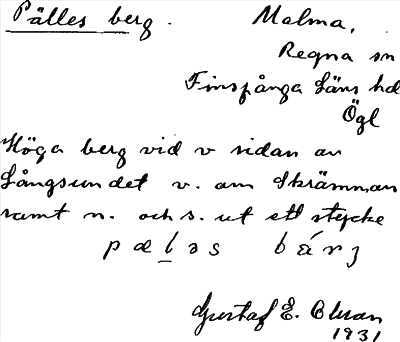 Pålles berg. Malma,
Regna sn
Finspånga läns hd
Ögl
Höga berg vid v sidan av
Långsundet v. om Skrämman
samt n. och s. ut ett stycke
Gustaf E.
1931